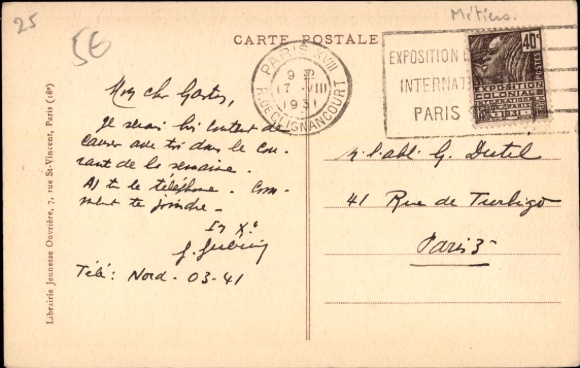 25
56
Métiers.
CARTE POSTALE
PARIS XVIII
9 H
17 VIII
1931
R. DE CLIGNANCOURT
EXPOSITION
INTERNAT
PARIS
40c
POSTES
EXPOSITION
COLONIALE
INTERNATIONALE
PARIS 1931
Mon cher Gaston,
Je serai bien content de
causer avec toi dans le cou-
rant de la semaine.
As tu le téléphone. Com-
ment te joindre.
In Xº
Télé: Nord - 03-41
M. l'abbé G. Dutel
41 Rue de Turbigo
Paris 3
Librairie Jeunesse Ouvrière, 7, rue St-Vincent, Paris (18e)